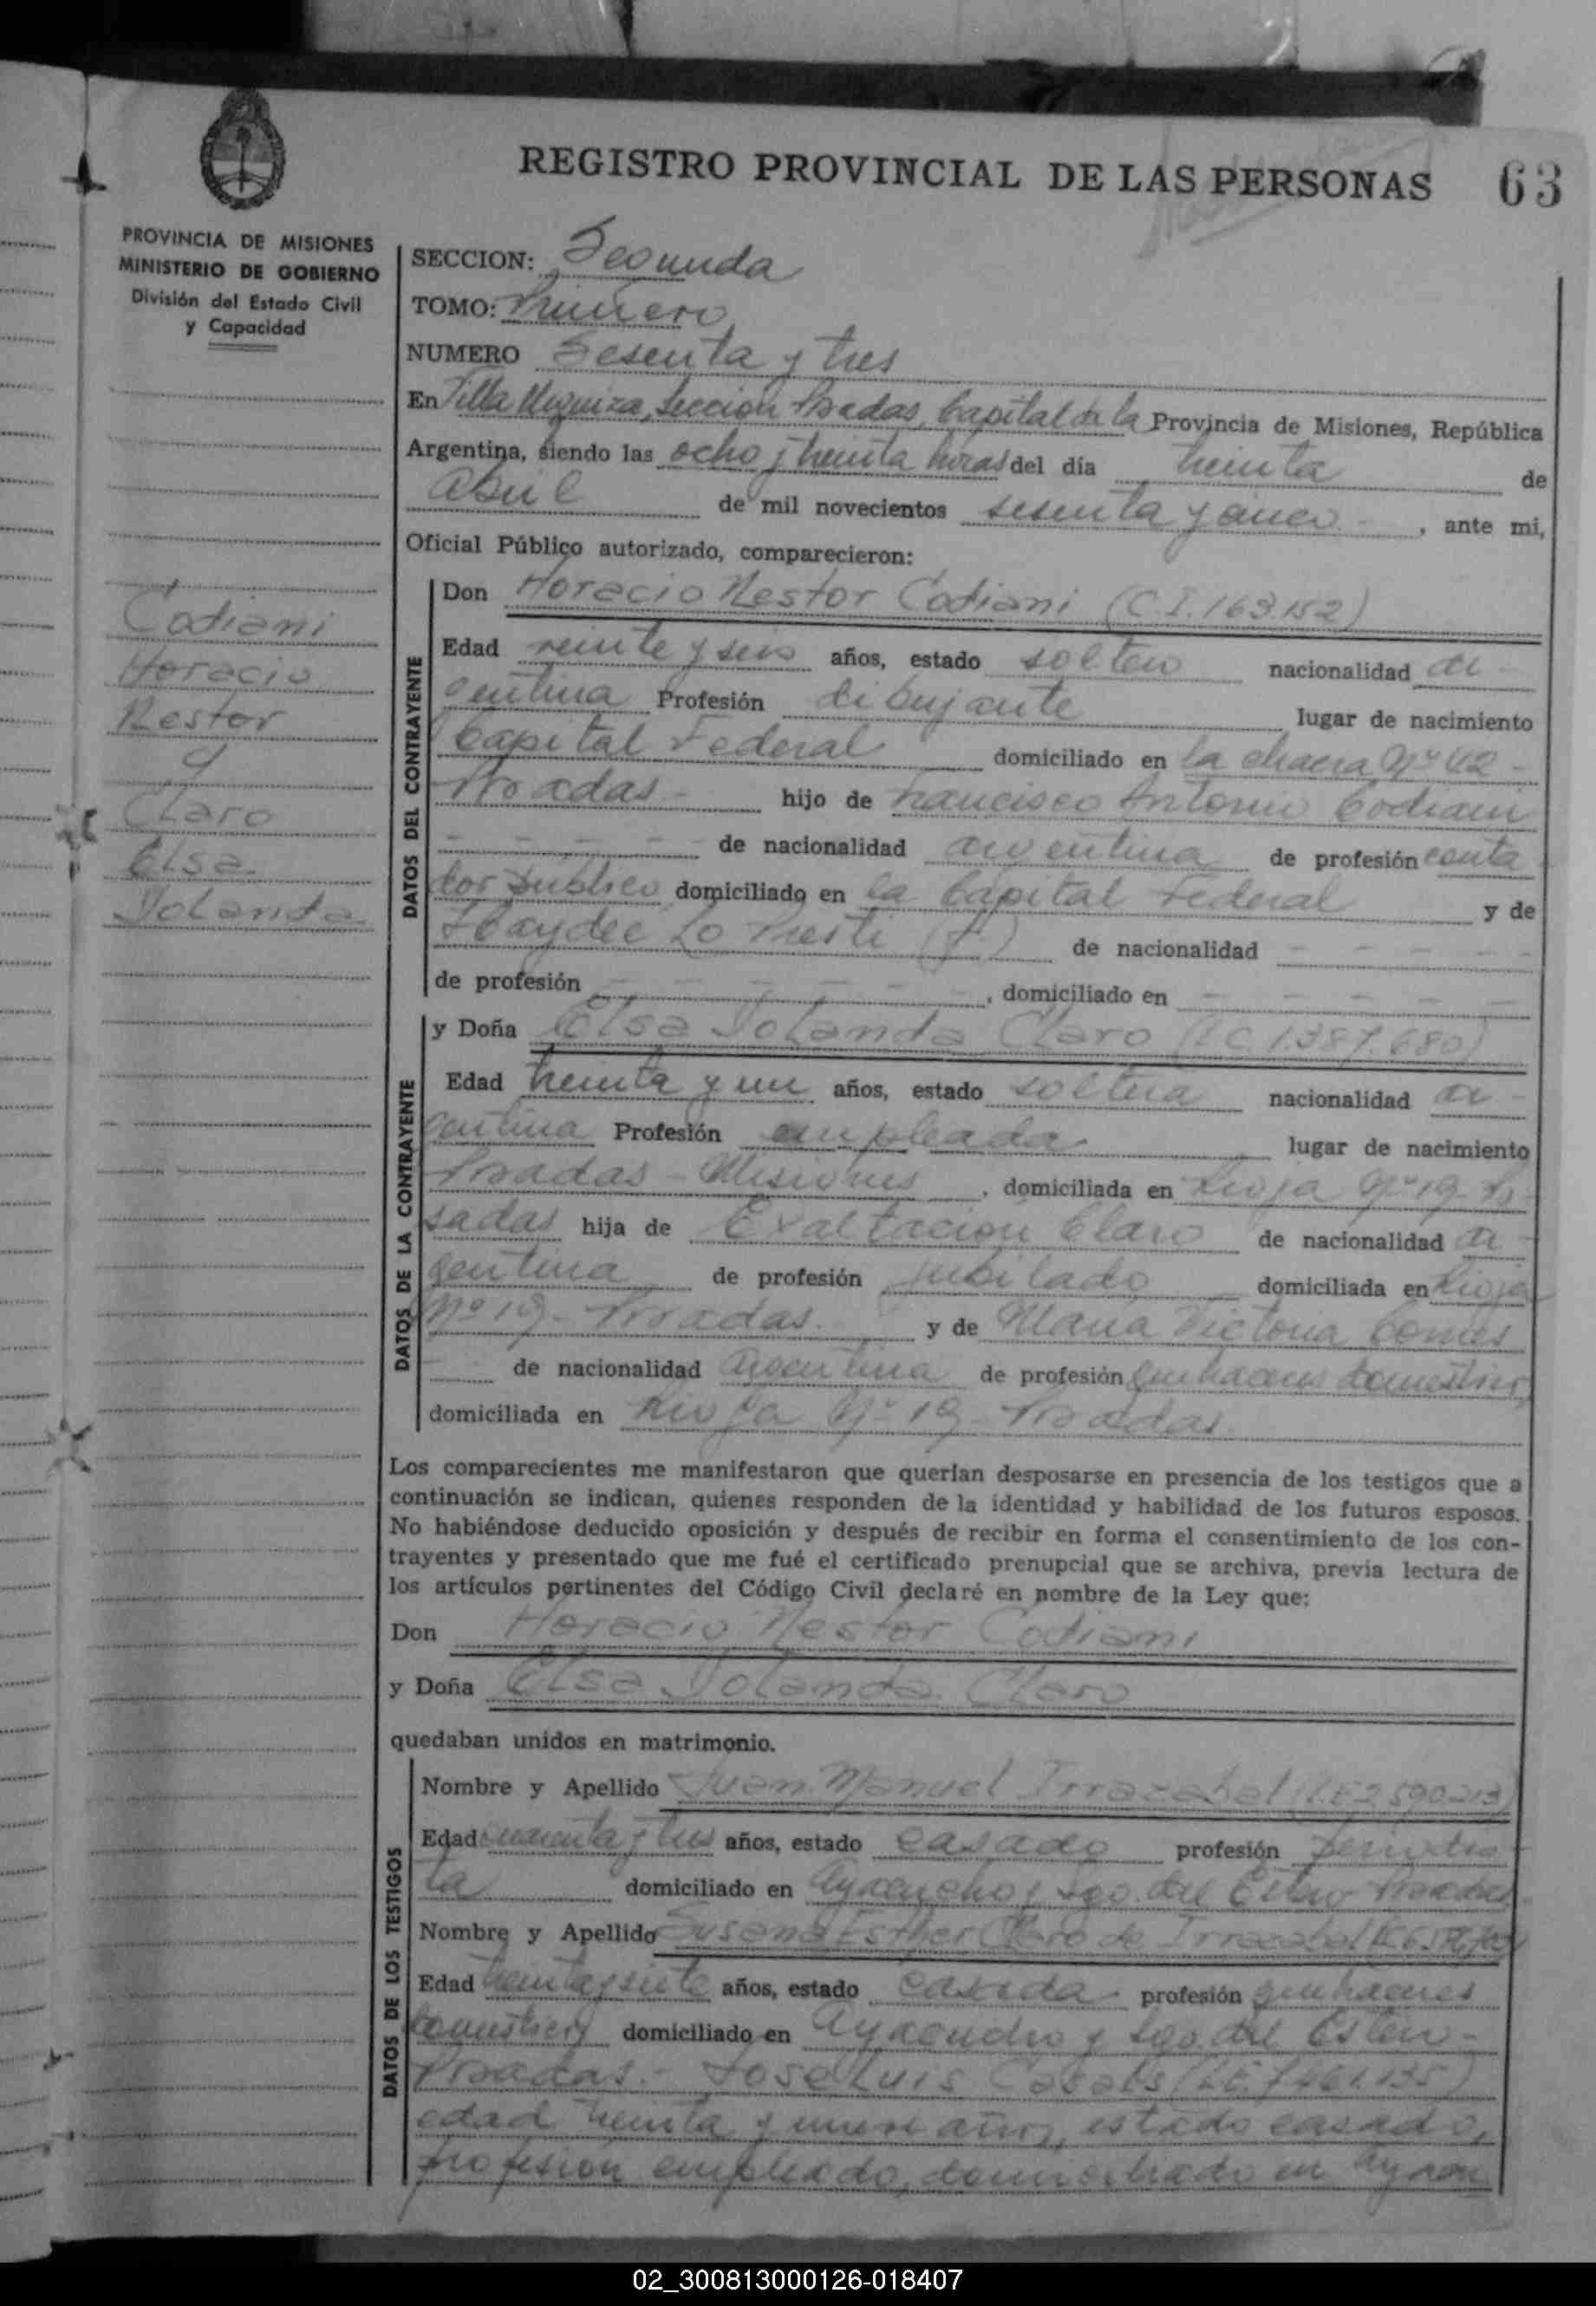 REGISTRO PROVINCIAL DE LAS PERSONAS 63
PROVINCIA DE MISIONES
MINISTERIO DE GOBIERNO
División del Estado Civil
y Capacidad
Codiani
Horacio
Nestor
y
Claro
Elsa
Yolanda
SECCION: Segunda
TOMO: Primero
NUMERO Sesenta y tres
En Villa Urquiza, Sección Posadas, Capital de la Provincia de Misiones, República
Argentina, siendo las ocho y treinta horas del día treinta de
Abril de mil novecientos sesenta y cinco - , ante mi,
Oficial Público autorizado, comparecieron:
DATOS DEL CONTRAYENTE
Don Horacio Nestor Codiani (C.I. 163.152)
Edad veinte y seis años, estado soltero nacionalidad ar-
gentina Profesión dibujante lugar de nacimiento
Capital Federal domiciliado en la chacra Nº 42 -
Posadas - hijo de Francisco Antonio Codiani
- - - - - de nacionalidad argentina de profesión conta
dor público domiciliado en la Capital Federal y de
Haydee Lo Presti (f.) de nacionalidad - - - -
de profesión - - - - - - , domiciliado en - - - - -
DATOS DE LA CONTRAYENTE
y Doña Elsa Yolanda Claro (L.C. 1.387.680)
Edad treinta y un años, estado soltera nacionalidad ar-
gentina Profesión empleada lugar de nacimiento
Posadas - Misiones , domiciliada en Rioja Nº 19 - Po-
sadas hija de Exaltación Claro de nacionalidad ar-
gentina de profesión jubilado domiciliada en Rioja
Nº 19 - Posadas. y de Maria Victoria
- - de nacionalidad argentina de profesión quehaceres domésticos
domiciliada en Rioja Nº 19 - Posadas.
Los comparecientes me manifestaron que querían desposarse en presencia de los testigos que a
continuación se indican, quienes responden de la identidad y habilidad de los futuros esposos.
No habiéndose deducido oposición y después de recibir en forma el consentimiento de los con-
trayentes y presentado que me fué el certificado prenupcial que se archiva, previa lectura de
los artículos pertinentes del Código Civil declaré en nombre de la Ley que:
Don Horacio Nestor Codiani
y Doña Elsa Yolanda Claro
quedaban unidos en matrimonio.
DATOS DE LOS TESTIGOS
Nombre y Apellido Juan Manuel Irrazabal (L.E 2.590.213)
Edad cuarenta y tres años, estado casado profesión periodis-
ta domiciliado en Ayacucho y Sgo. del Estero Posadas
Nombre y Apellido Susana Esther Claro de Irrazabal
Edad treinta y siete años, estado casada profesión quehaceres
domésticos domiciliado en Ayacucho y Sgo. del Estero -
Posadas. - José Luis (L.E. 7.461.135)
edad treinta y nueve años, estado casado,
profesión empleado, domiciliado en Ayacu
02_300813000126-018407